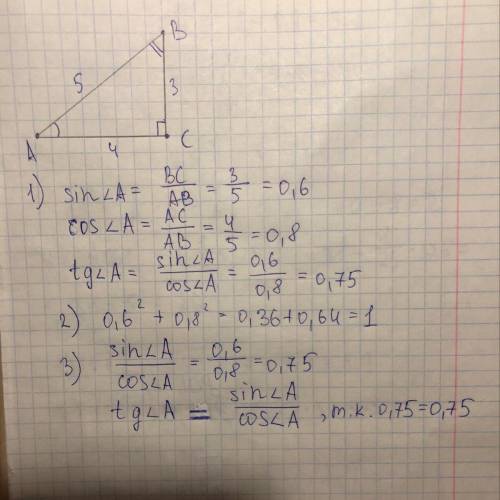 B
5
3
A
4
C
1) sin∠A = BC/AB = 3/5 = 0,6
cos∠A = AC/AB = 4/5 = 0,8
tg∠A = sin∠A/cos∠A = 0,6/0,8 = 0,75
2) 0,6² + 0,8² = 0,36+0,64 = 1
3) sin∠A/cos∠A = 0,6/0,8 = 0,75
tg∠A = sin∠A/cos∠A , т.к. 0,75=0,75